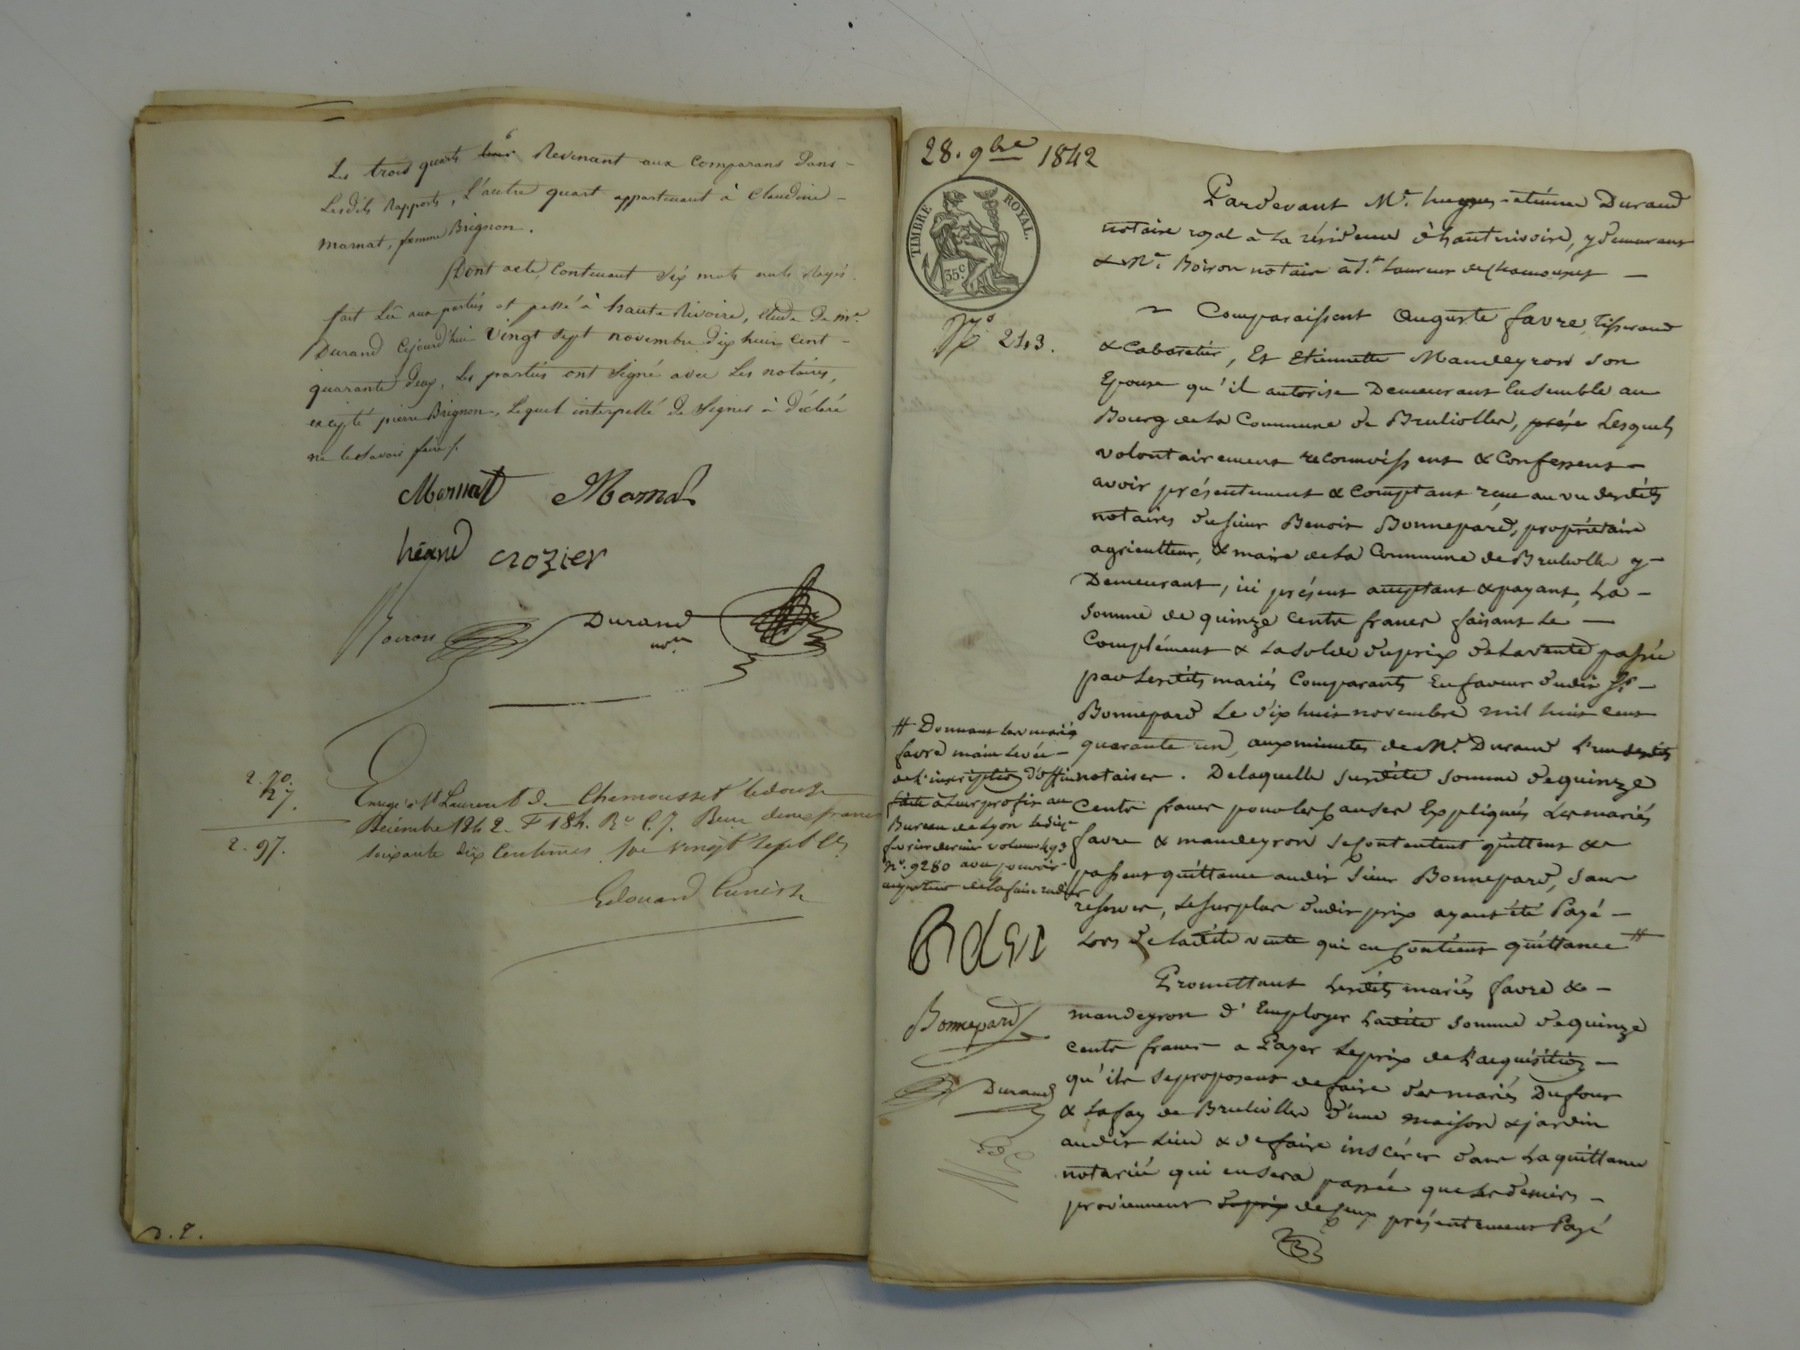 Les trois quarts revenant aux comparans dans
Lesdits rapports, L'autre quart appartenant à Claudine
Mornat, femme Brignon.
Dont acte, Contenant six mots nuls rayés.
fait Lû aux parties et passé à haute Rivoire, étude de Me.
Durand Cejourd'hui vingt sept novembre dix huit cent
quarante deux, Les parties ont signé avec Les notaires,
excepté pierre Brignon, Lequel interpellé de signer à déclaré
ne le savoir faire /.
Mornat Mornat
crozier
Boiron Durand
nre
2. 70.
27.
2. 97.
Enregé à St Laurent de Chamousset le douze
Décembre 1842 Fo 184 Ro C. 7. Reçu deux francs
soixante dix Centimes, 10e vingt sept Cs
Edouard
D. 2.
28. 9bre 1842
TIMBRE ROYAL.
35 c
No 213.
Pardevant Me. hugues-étienne Durand
notaire royal à La résidence d'hauterivoire, y demeurant
& Me. Boiron notaire à St. Laurent de Chamousset
Comparaissent Auguste favre, tisserand
& Cabaretier, Et Etiennette Mandeyron son
Epouse qu'il autorise Demeurant Ensemble au
Bourg de La Commune de Brullioller, Lesquels
volontairement reconnoissent & Confessent
avoir présentement & Comptant reçu au vu desdits
notaires du sieur Benoit Bonnepard, propriétaire
agriculteur, & maire de La Commune de Brulliolle y
Demeurant, ici présent acceptant & payant, La
somme de quinze cents francs faisant Le
Complément & La solde du prix de La vente passée
par Lesdits mariés Comparants En faveur dudit Sr
Bonnepard Le dix huit novembre mil huit cent
quarante un, aux minutes de Me. Durand L'un desdits
notaires. De laquelle susdite somme de quinze
Cents francs pour les Causes Expliquées Les mariés
favre & mandeyron se contentent quittent &
passent quittance audit sieur Bonnepard, sans
reserver, Le surplus dudit prix ayant été Payé
Lors de Ladite vente qui en Contient quittance #
# Donnant Les mariés
favre main Levée
de L'inscription d'office
faite à Leur profit au
Bureau de Lyon Le dix
février dernier volume 493
No. 9280 avec pouvoir
au porteur de La faire radier
Bonnepard
Durand
Promettant Lesdits mariés favre &
mandeyron d'Employer Ladite somme de quinze
cents francs a Payer Le prix de L'acquisition
qu'ils se proposent de faire des mariés Dufour
& Lafay de Brulliolle d'une maison & jardin
audit Lieu & de faire insérer dans La quittance
notariée qui en sera passée que Les deniers
proviennent du prix de ceux présentement Payé